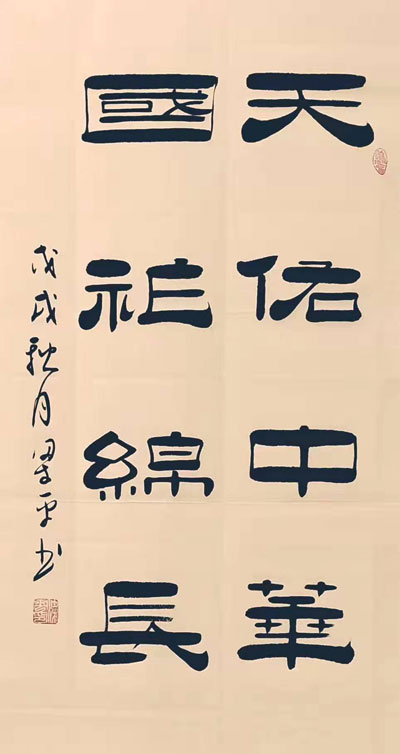 天佑中華
國祚綿長
戊戌秋月平书